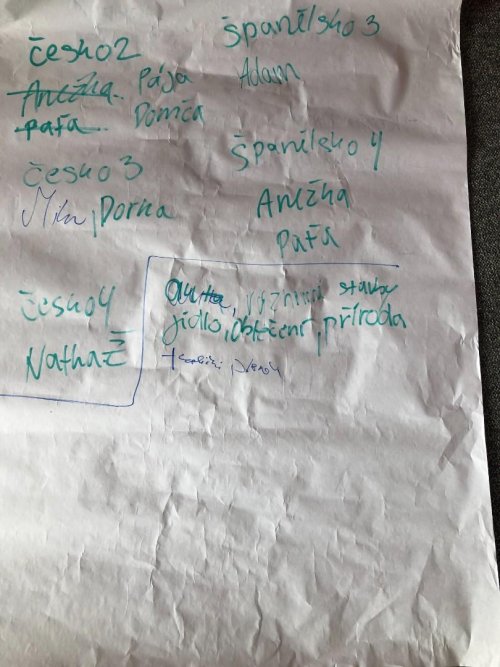 česko2
Anežka Pája
Páťa Domča
česko 3
Míla, Dorka
česko4
Nathač
španělsko 3
Adam
španělsko 4
Anežka
Páťa
auta, význam stavby
jídlo, oblečení, příroda
+